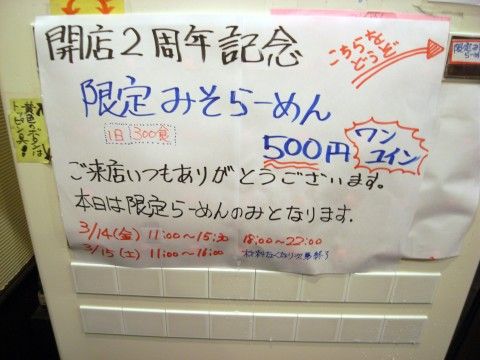 開店2周年記念
こちらを
どうぞ
限定みそらーめん
1日 300食
500円
ワン
コイン
ご来店いつもありがとうございます。
本日は限定らーめんのみとなります.
3/14(金) 11:00～15:30 18:00～22:00
3/15(土) 11:00～16:00 材料なくなり次第終了
黄色いボタンは
トッピング!